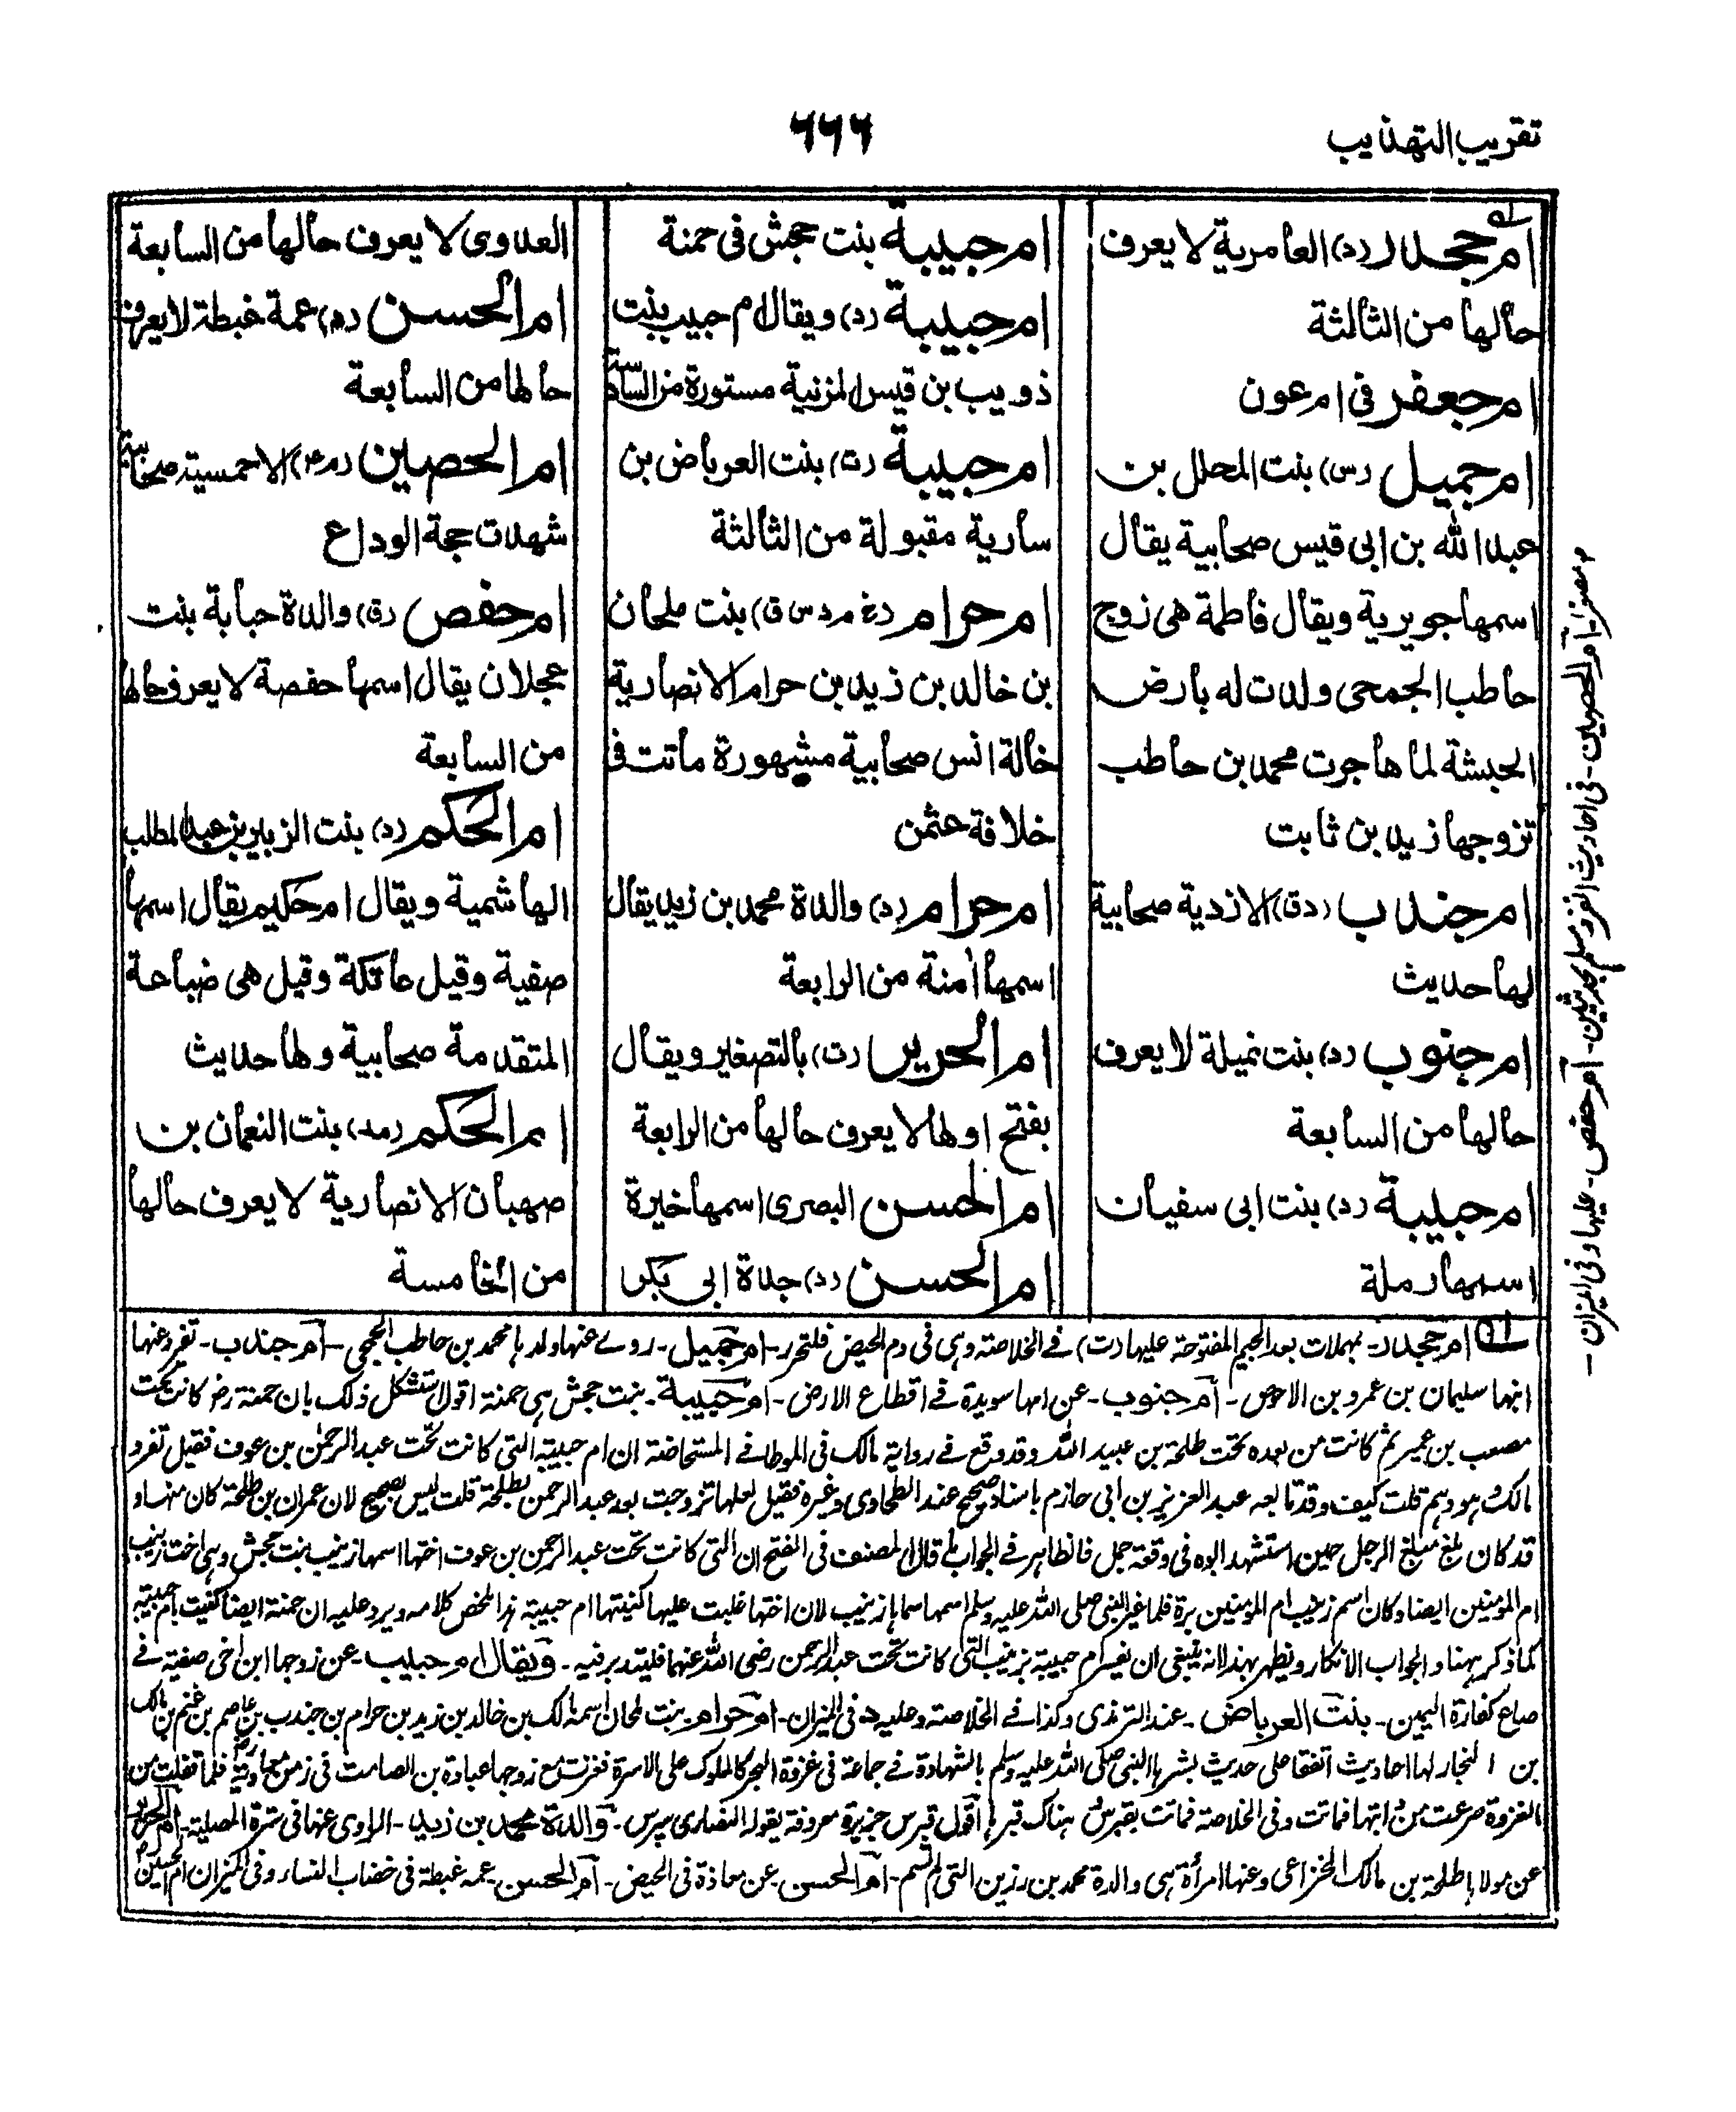 تقريب التهذيب
٦٦٦
ام جحدر (د) العامرية لا يعرف
حالها من الثالثة
ام جعفر فى ام عون
ام جميل (س) بنت المحلل بن
عبد الله بن ابى قيس صحابية يقال
اسمها جويرية ويقال فاطمة هى زوج
حاطب الجمحى ولدت له بارض
الحبشة لما هاجرت محمد بن حاطب
تزوجها زيد بن ثابت
ام جندب (دق) الازدية صحابية
لها حديث
ام جنوب (د) بنت نميلة لا يعرف
حالها من السابعة
ام حبيبة (د) بنت ابى سفيان
اسمها رملة
ام حبيبة بنت جحش فى حمنة
ام حبيبة (د) ويقال ام حبيب بنت
ذويب بن قيس المزنية مستورة من السادسة
ام حبيبة (ت) بنت العرباض بن
سارية مقبولة من الثالثة
ام حرام (خ م د س ق) بنت ملحان
بن خالد بن زيد بن حرام الانصارية
خالة انس صحابية مشهورة ماتت فى
خلافة عثمن
ام حرام (د) والدة محمد بن زيد يقال
اسمها آمنة من الرابعة
ام الحرير (ت) بالتصغير ويقال
بفتح اولها لا يعرف حالها من الرابعة
ام الحسن البصرى اسمها خيرة
ام الحسن (د) جدة ابى بكر
العدوى لا يعرف حالها من السابعة
ام الحسن (د) عمة غبطة لا يعرف
حالها من السابعة
ام الحصين (م٤) الاحمسية صحابية
شهدت حجة الوداع
ام حفص (ق) والدة حبابة بنت
عجلان يقال اسمها حفصة لا يعرف حالها
من السابعة
ام الحكم (د) بنت الزبير بن عبد المطلب
الهاشمية ويقال ام حكيم يقال اسمها
صفية وقيل عاتكة وقيل هى ضباعة
المتقدمة صحابية ولها حديث
ام الحكم (مد) بنت النعمان بن
صهبان الانصارية لا يعرف حالها
من الخامسة
ام جحدر۔ بمهملات بعد الجيم المفتوحة عليها (ت) فے الخلاصة وہى فى دم الحيض فلتحرر۔ ام جميل۔ روے عنها ولدہا محمد بن حاطب الجمحى۔ ام جندب۔ تفرد عنها
ابنها سليمان بن عمرو بن الاحوص۔ ام جنوب۔ عن امها سويدة فے اقطاع الارض۔ ام حبيبة۔ بنت جحش ہى حمنة اقول تستشكل ذلك بان حمنة رض كانت تحت
مصعب بن عمير ثم كانت من بعده تحت طلحة بن عبيد الله وقد وقع فے رواية مالك فى الموطا فے المستحاضة ان ام حبيبة التى كانت تحت عبد الرحمن بن عوف فقيل تفرد
مالك ہو وہم قلت كيف وقد تابعه عبد العزيز بن ابى حازم باسناد صحيح عند الطحاوى وغيره فقيل لعلها تزوجت بعد عبد الرحمن بطلحة قلت ليس بصحيح لان عمران بن طلحة كان منها و
قد كان بلغ مبلغ الرجل حين استشهد ابوه فى وقعة جمل فالظاہر فے الجواب ما قال المصنف فى الفتح ان التى كانت تحت عبد الرحمن بن عوف اختها اسمها زينب بنت جحش وہى اخت زينب
ام المومنين ايضا وكان اسم زينب ام المومنين برة فلما غير النبى صلى الله عليه وسلم اسمها سماہا زينب لان اختها غلبت عليها كنيتها ام حبيبة ہذا ملخص كلامه ويرد عليه ان حمنة ايضا كنيت بام حبيبة
كما ذكر ہہنا والجواب الانكار ويظهر بہذا انه ينبغى ان يفسر ام حبيبة بزينب التى كانت تحت عبد الرحمن رضى الله عنهما فليتدبر فيه۔ ويقال ام حبيب۔ عن زوجها ابن اخى صفية فے
صاع كفارة اليمين۔ بنت العرباض۔ عند الترمذى وكذا فے الخلاصة وعليه د فى الميزان۔ ام حرام۔ بنت ملحان اسمه مالك بن خالد بن زيد بن حرام بن جندب بن عاصم بن غنم بن مالك
بن النجار لها احاديث اتفقا على حديث بشرہا النبى صلى الله عليه وسلم بالشهادة فے جماعة فى غزوة البحر كالملوك على الاسرة فغزت مع زوجها عبادة بن الصامت فى زمن معاوية رض فلما قفلت من
الغزوة صرعت من دابتها فماتت وفى الخلاصة فماتت بقبرس ہناك قبرہا اقول قبرس جزيرة معروفة يقوله النصارى سپرس۔ والدة محمد بن زيد۔ الراوى عنها فى سترة المصلية۔ ام الحرير
عن مولاہا طلحة بن مالك الخزاعى وعنها امرأة ہى والدة محمد بن رزين التى لم تسم۔ ام الحسن۔ عن معاذة فى الحيض۔ ام الحسن۔ عمة غبطة فى خضاب النساء وفى الميزان ام الحسين
ام الحصين۔ فى احاديث انفرد مسلم بحديثين۔ ام حفص۔ عليها د فى الميزان۔